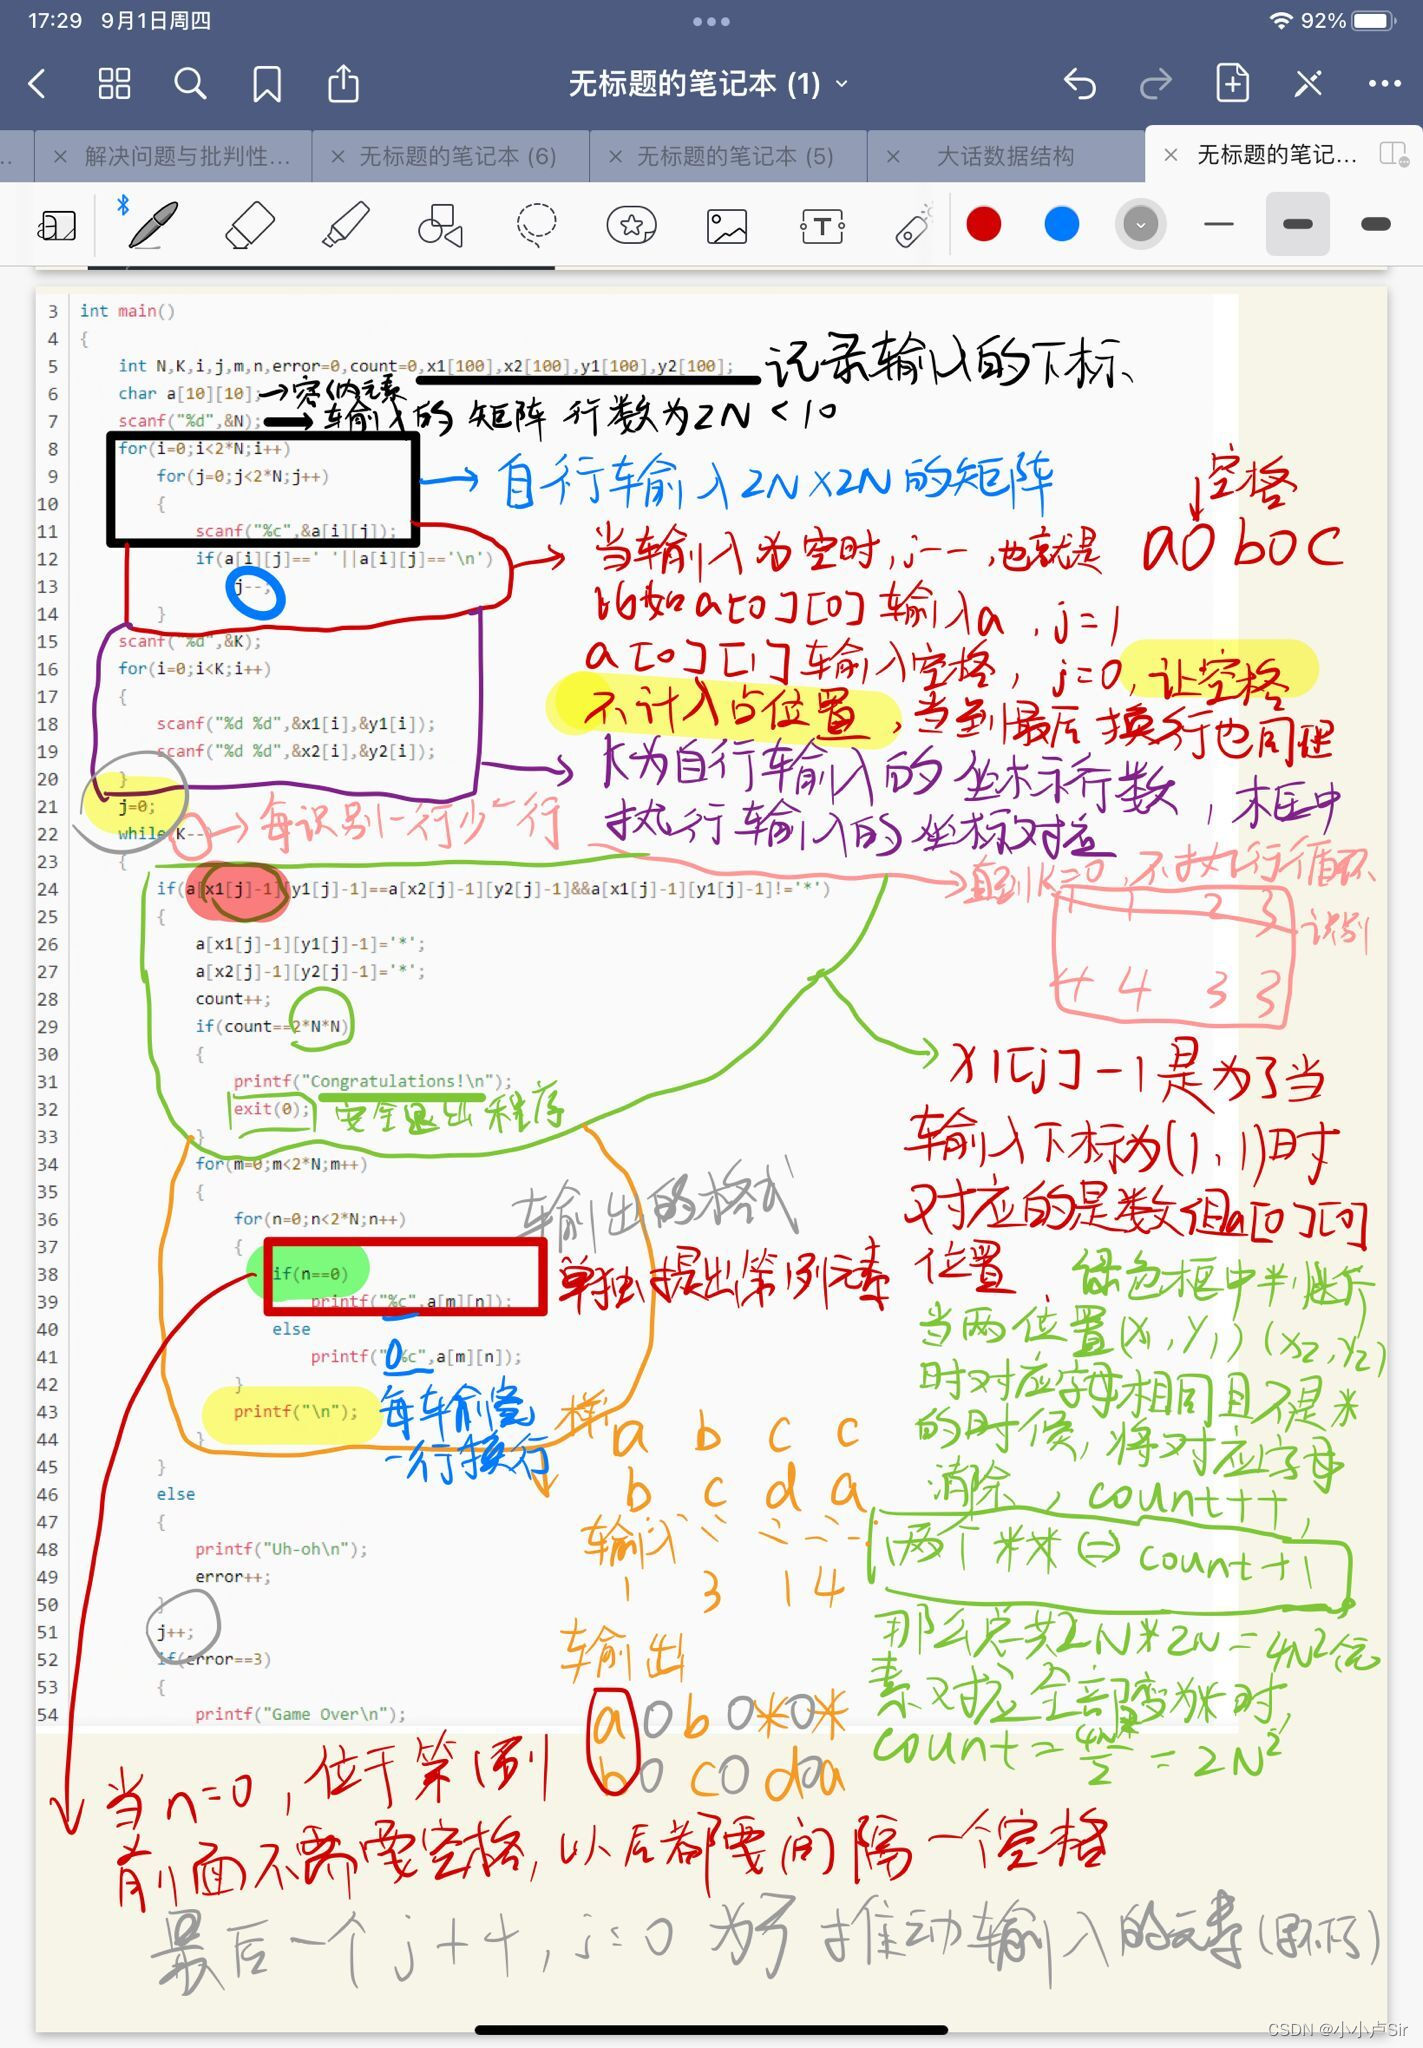 17:29 9月1日周四
92%
无标题的笔记本 (1)
解决问题与批判性...
无标题的笔记本 (6)
无标题的笔记本 (5)
大话数据结构
无标题的笔记...
3 int main()
4 {
5 int N,K,i,j,m,n,error=0,count=0,x1[100],x2[100],y1[100],y2[100]; 记录输入的下标
6 char a[10][10]; →容纳元素
7 scanf("%d",&N); →输入的矩阵行数为2N<10
8 for(i=0;i<2*N;i++)
9 for(j=0;j<2*N;j++) →自行输入2N×2N的矩阵
10 {
11 scanf("%c",&a[i][j]);
12 if(a[i][j]==' '||a[i][j]=='\n')
13 j--;
14 }
空格
a0b0c
当输入为空时,j--,也就是
比如a[0][0]输入a,j=1
a[0][1]输入空格,j=0,让空格
不计入占位置,当到最后换行也同理
15 scanf("%d",&K);
16 for(i=0;i<K;i++)
17 {
18 scanf("%d %d",&x1[i],&y1[i]);
19 scanf("%d %d",&x2[i],&y2[i]);
20 }
K为自行输入的坐标行数,框中
执行输入的坐标对应
21 j=0;
22 while(K--) →每识别一行少一行
→直到K=0,不执行循环
23 {
24 if(a[x1[j]-1][y1[j]-1]==a[x2[j]-1][y2[j]-1]&&a[x1[j]-1][y1[j]-1]!='*')
1 1 2 3 识别
4 4 3 3
25 {
26 a[x1[j]-1][y1[j]-1]='*';
27 a[x2[j]-1][y2[j]-1]='*';
28 count++;
29 if(count==2*N*N)
30 {
31 printf("Congratulations!\n");
32 exit(0); 安全退出程序
33 }
x1[j]-1是为了当
输入下标为(1,1)时
对应的是数组a[0][0]
位置
34 for(m=0;m<2*N;m++)
35 {
36 for(n=0;n<2*N;n++) 输出的格式
37 {
38 if(n==0) 单独提出第1列元素
39 printf("%c",a[m][n]);
40 else
41 printf(" %c",a[m][n]);
42 }
43 printf("\n"); 每输完
44 } 一行换行
绿色框中判断
当两位置(x1,y1)(x2,y2)
时对应字母相同且不是*
的时候,将对应字母
消除,count++
两个** ⇔ count+1
那么总共2N*2N=4N²个元
素对应全部变为*时
count=4N²/2=2N²
45 }
46 else
47 {
48 printf("Uh-oh\n");
49 error++;
50 }
51 j++;
52 if(error==3)
53 {
54 printf("Game Over\n");
a b c c
b c d a
输入
1 3 1 4
输出
a0b0*0*
b0c0d0a
当n=0,位于第1列
前面不需要空格,以后都要间隔一个空格
最后一个j++,j=0为了推动输入的元素
CSDN @小小卢Sir